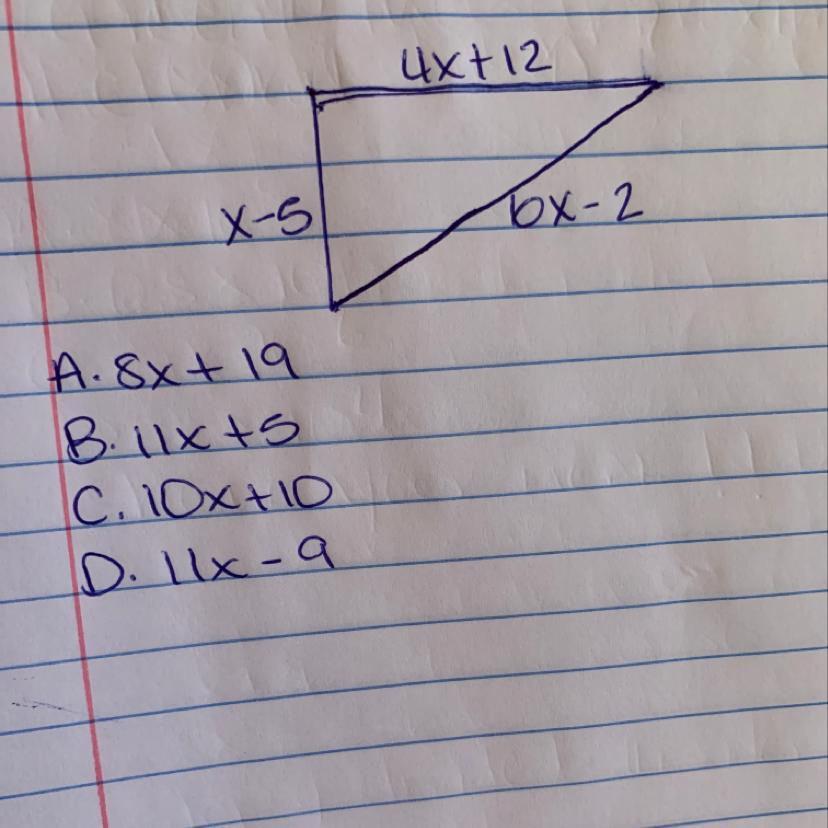 4x+12
x-5
6x-2
A. 8x+19
B. 11x+5
C. 10x+10
D. 11x-9